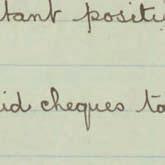 tant positi
id cheques to